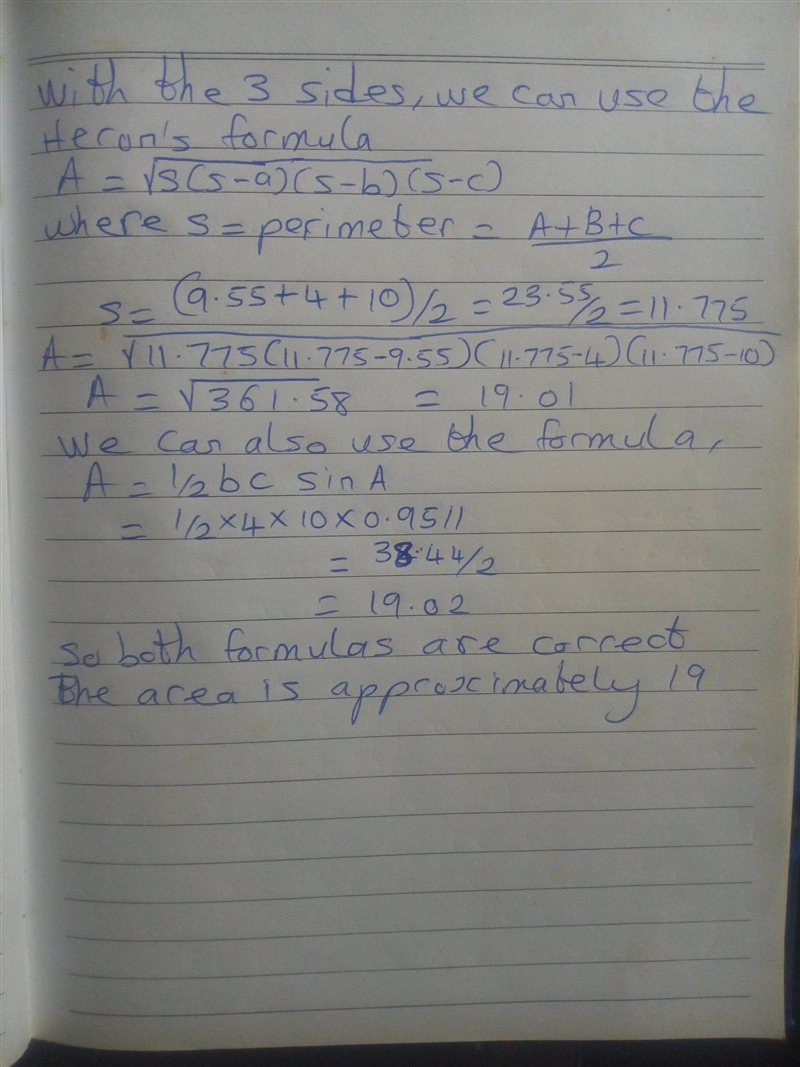 with the 3 sides, we can use the
Heron's formula
A = √S(s-a)(s-b)(s-c)
where s = perimeter = A+B+C/2
s = (9.55+4+10)/2 = 23.55/2 = 11.775
A = √11.775(11.775-9.55)(11.775-4)(11.775-10)
A = √361.58 = 19.01
We can also use the formula,
A = 1/2 bc sin A
= 1/2 × 4 × 10 × 0.9511
= 38.44/2
= 19.02
So both formulas are correct
The area is approximately 19